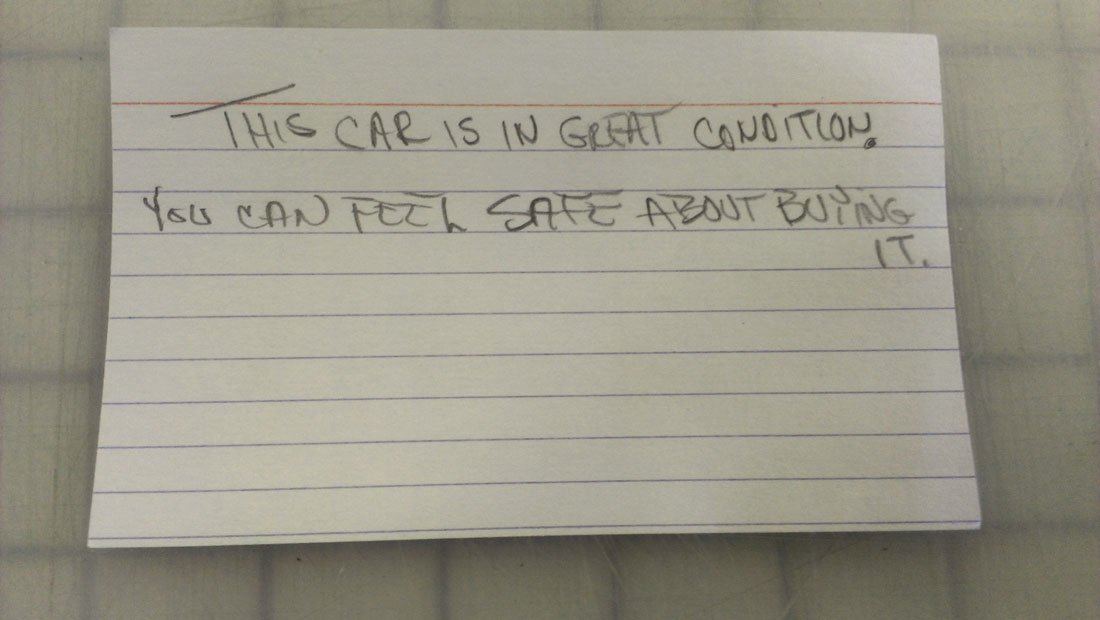 THIS CAR IS IN GREAT CONDITION.
YOU CAN FEEL SAFE ABOUT BUYING
IT.